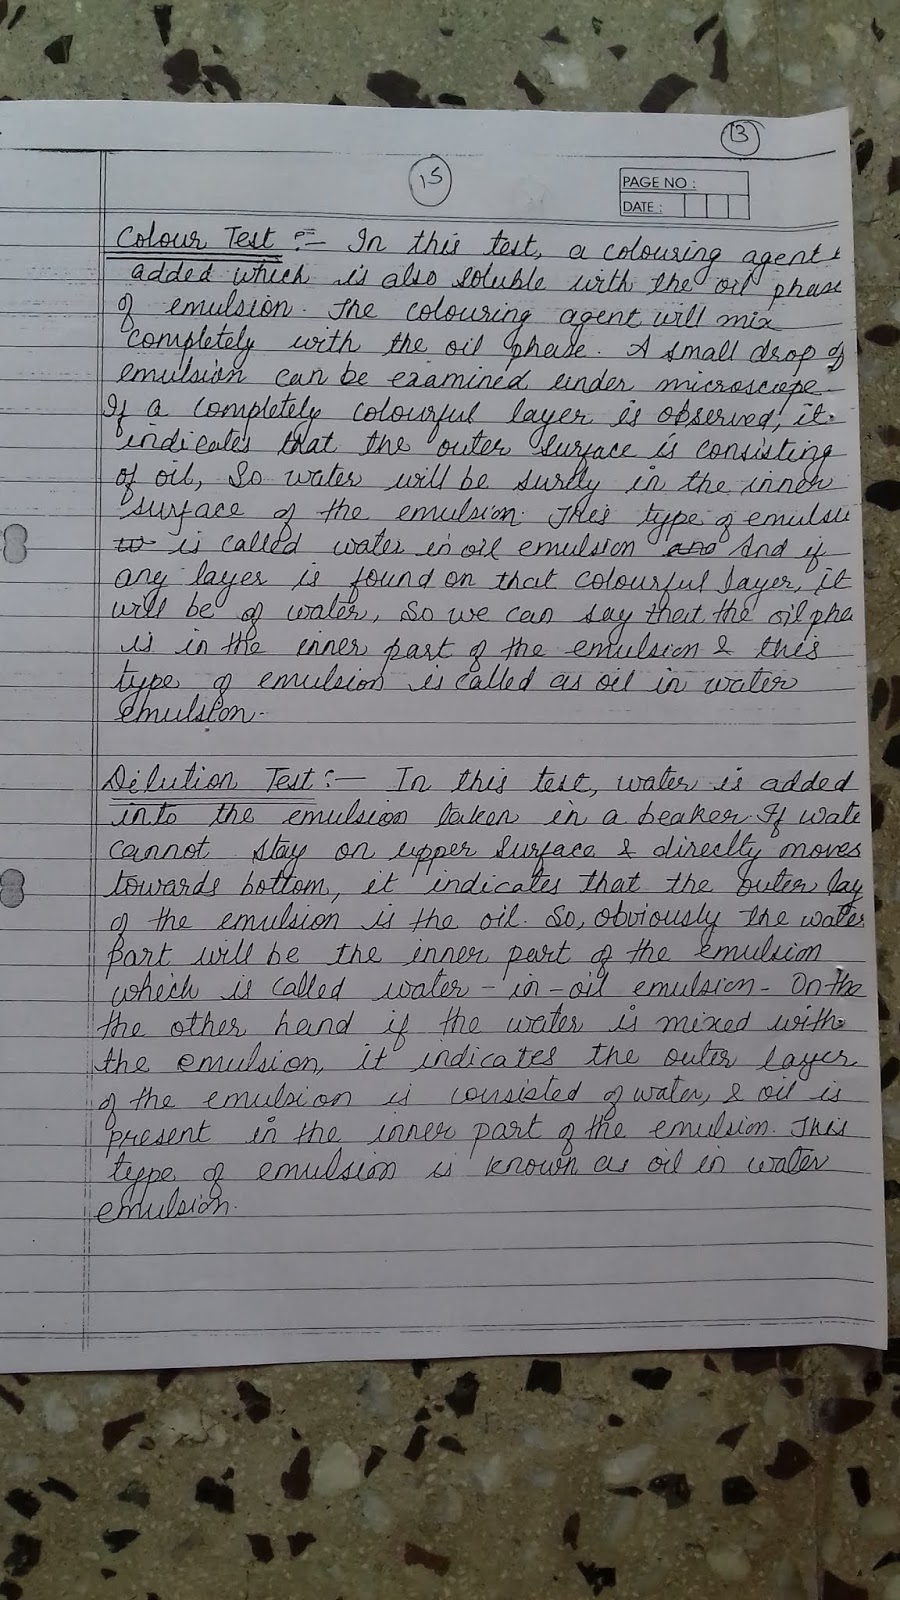 13
15
PAGE NO :
DATE :
Colour Test :- In this test, a colouring agent
added which is also soluble with the oil phase
of emulsion. The colouring agent will mix
completely with the oil phase. A small drop of
emulsion can be examined under microscope.
If a completely colourful layer is observed, it
indicates that the outer surface is consisting
of oil, So water will be surely in the inner
surface of the emulsion. This type of emulsi
is called water in oil emulsion and And if
any layer is found on that colourful layer, it
will be of water, So we can say that the oil pha
is in the inner part of the emulsion & this
type of emulsion is called as oil in water
emulsion.
Dilution Test :- In this test, water is added
into the emulsion taken in a beaker. If wate
cannot stay on upper Surface & direclty moves
towards bottom, it indicates that the outer lay
of the emulsion is the oil. So, obviously the water
part will be the inner part of the emulsion
which is called water - in - oil emulsion - On the
the other hand if the water is mixed with
the emulsion, it indicates the outer layer
of the emulsion is consisted of water, & oil is
present in the inner part of the emulsion. This
type of emulsion is known as oil in water
emulsion.